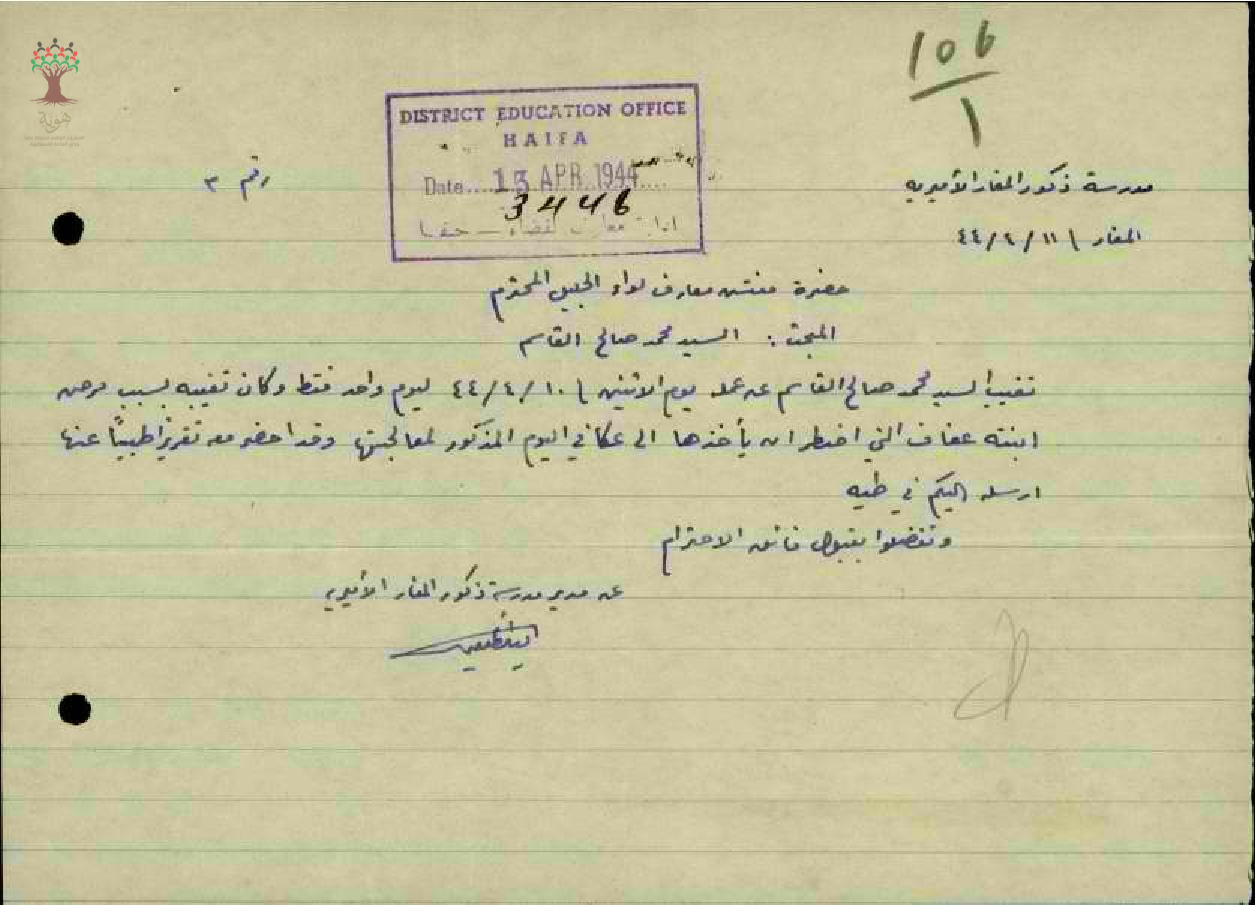 106
1
هوية
DISTRICT EDUCATION OFFICE
HAIFA
Date.... 13 APR 1944....
3446
ادارة معارف لقضاء – حيفا
مدرسة ذكور المغار الأميرية
رقم ٣
المغار ١١/٤/٤٤
حضرة مفتش معارف لواء الجليل المحترم
المبحث : السيد محمد صالح القاسم
تغيب السيد محمد صالح القاسم عن عمله يوم الاثنين ١٠/٤/٤٤ ليوم واحد فقط وكان تغيبه بسبب مرض
ابنته عفاف التي اضطر ان يأخذها الى عكا في اليوم المذكور لمعالجتها وقد احضر معه تقريرًا طبيًا عنها
ارسله اليكم في طيه
وتفضلوا بقبول فائق الاحترام
عن مدير مدرسة ذكور المغار الأميرية